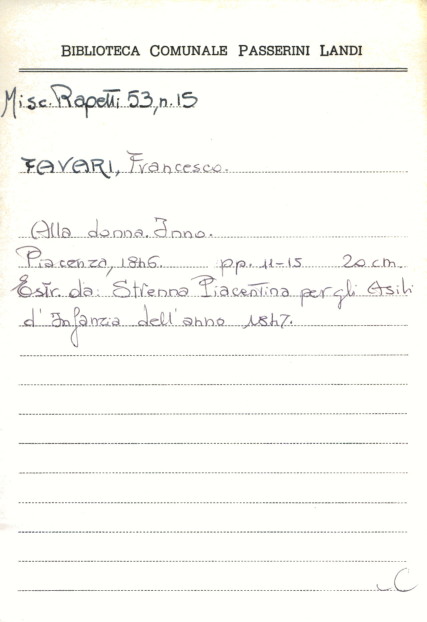 BIBLIOTECA COMUNALE PASSERINI LANDI
Misc. Rapetti 53, n. 15
FAVARI, Francesco.
Alla donna. Inno.
Piacenza, 1846. pp. 11-15 20 cm.
Estr. da: Strenna Piacentina per gli Asili
d'Infanzia dell'anno 1847.